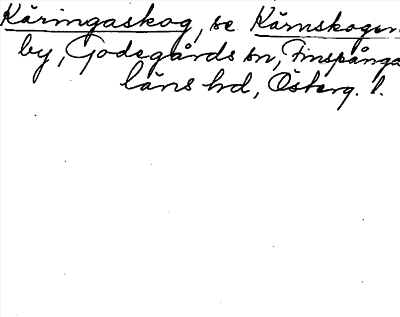 Käringaskog, se Kärnskogen
by, Godegårds sn, Finspånga
läns hd, Österg. l.